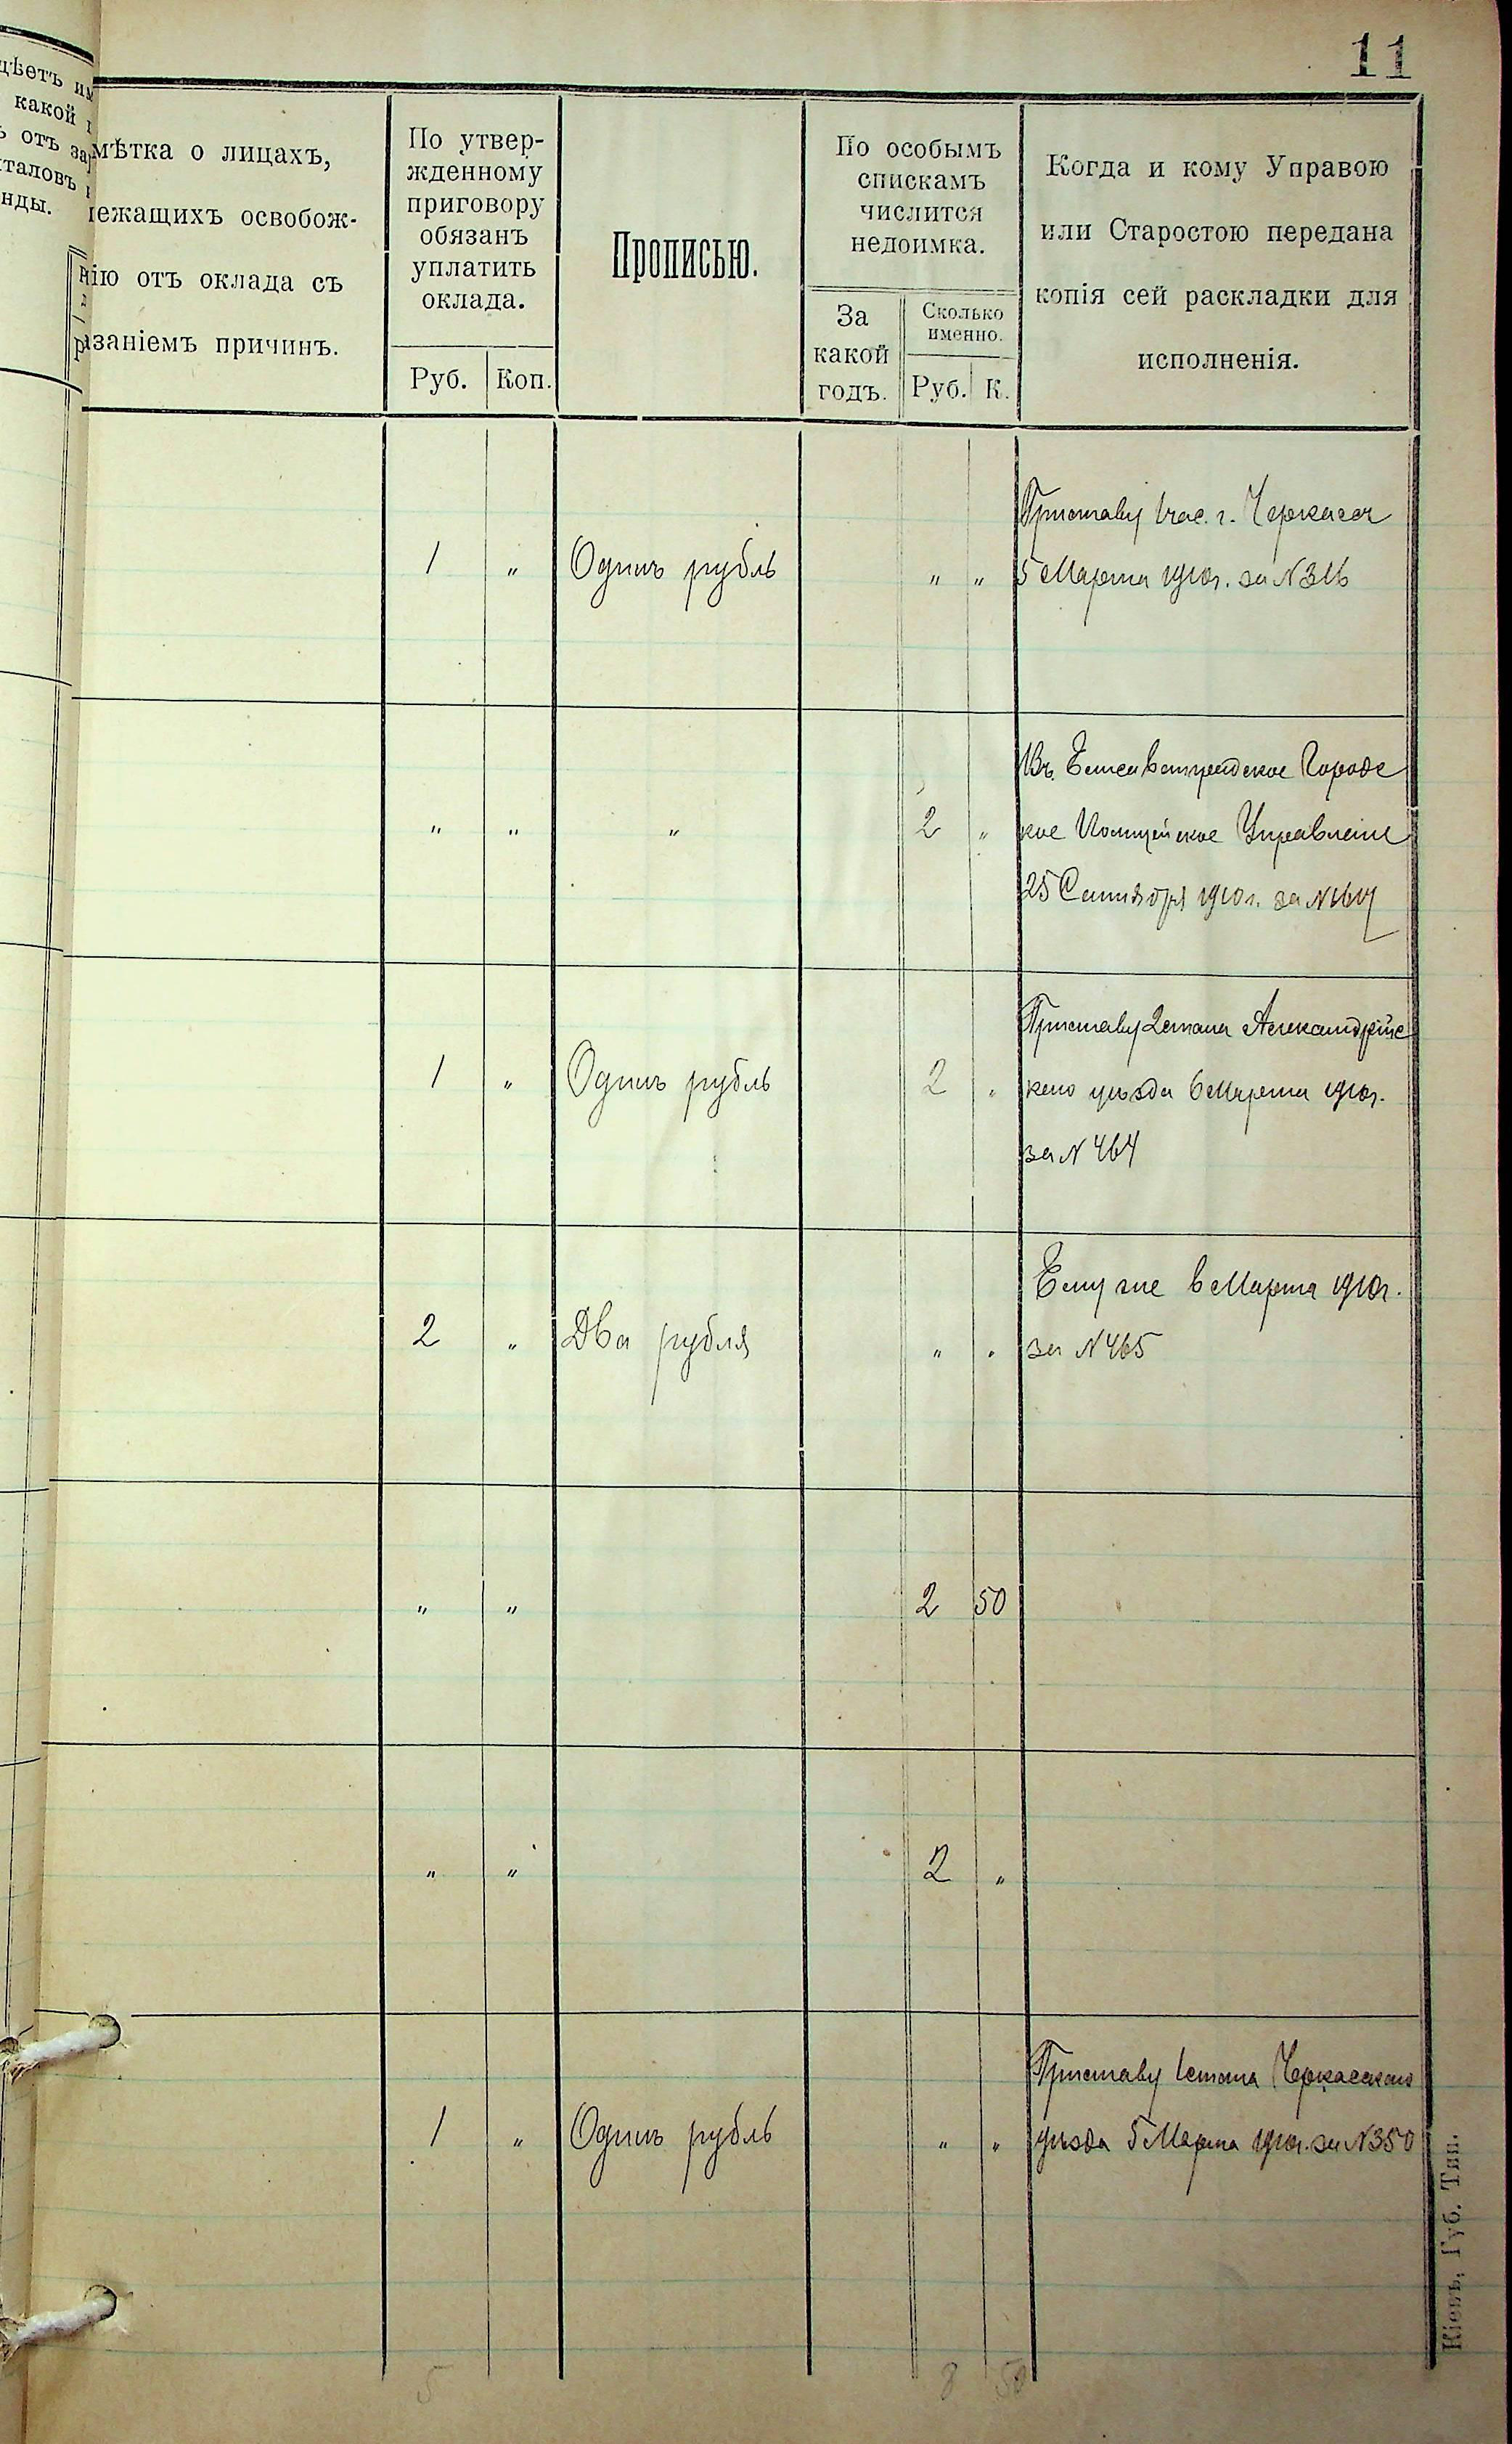 11
цѣетъ им
какой
отъ за
талов
нды.
мѣтка о лицахъ,
лежащихъ освобож-
нію отъ оклада съ
азаніемъ причинъ.
По утвер-
жденному
приговору
обязанъ
уплатить
оклада.
Руб. Коп.
Прописью.
По особымъ
спискамъ
числится
недоимка.
За
какой
годъ.
Сколько
именно.
Руб. К.
Когда и кому Управою
или Старостою передана
копія сей раскладки для
исполненія.
Приставу 1 час. г. Черкассъ
1 „ Одинъ рубль „ „ 5 Марта 1910г. за N 316
Въ Елисаветградское Городс
„ „ „ 2 „ кое Полицейское Управленіе
25 Сентября 1910г. за N
Приставу 2 стана Александрійс
1 „ Одинъ рубль 2 „ каго уѣзда 6 Марта 1910г.
за N 464
Ему же 6 Марта 1910г.
2 „ Два рубля „ „ за N 465
„ „ 2 50
„ „ 2 „
Приставу 1 стана Черкасскаго
1 „ Одинъ рубль „ „ уѣзда 5 Марта 1910г. за N 350
5 8 50
Кіевъ, Губ. Тип.